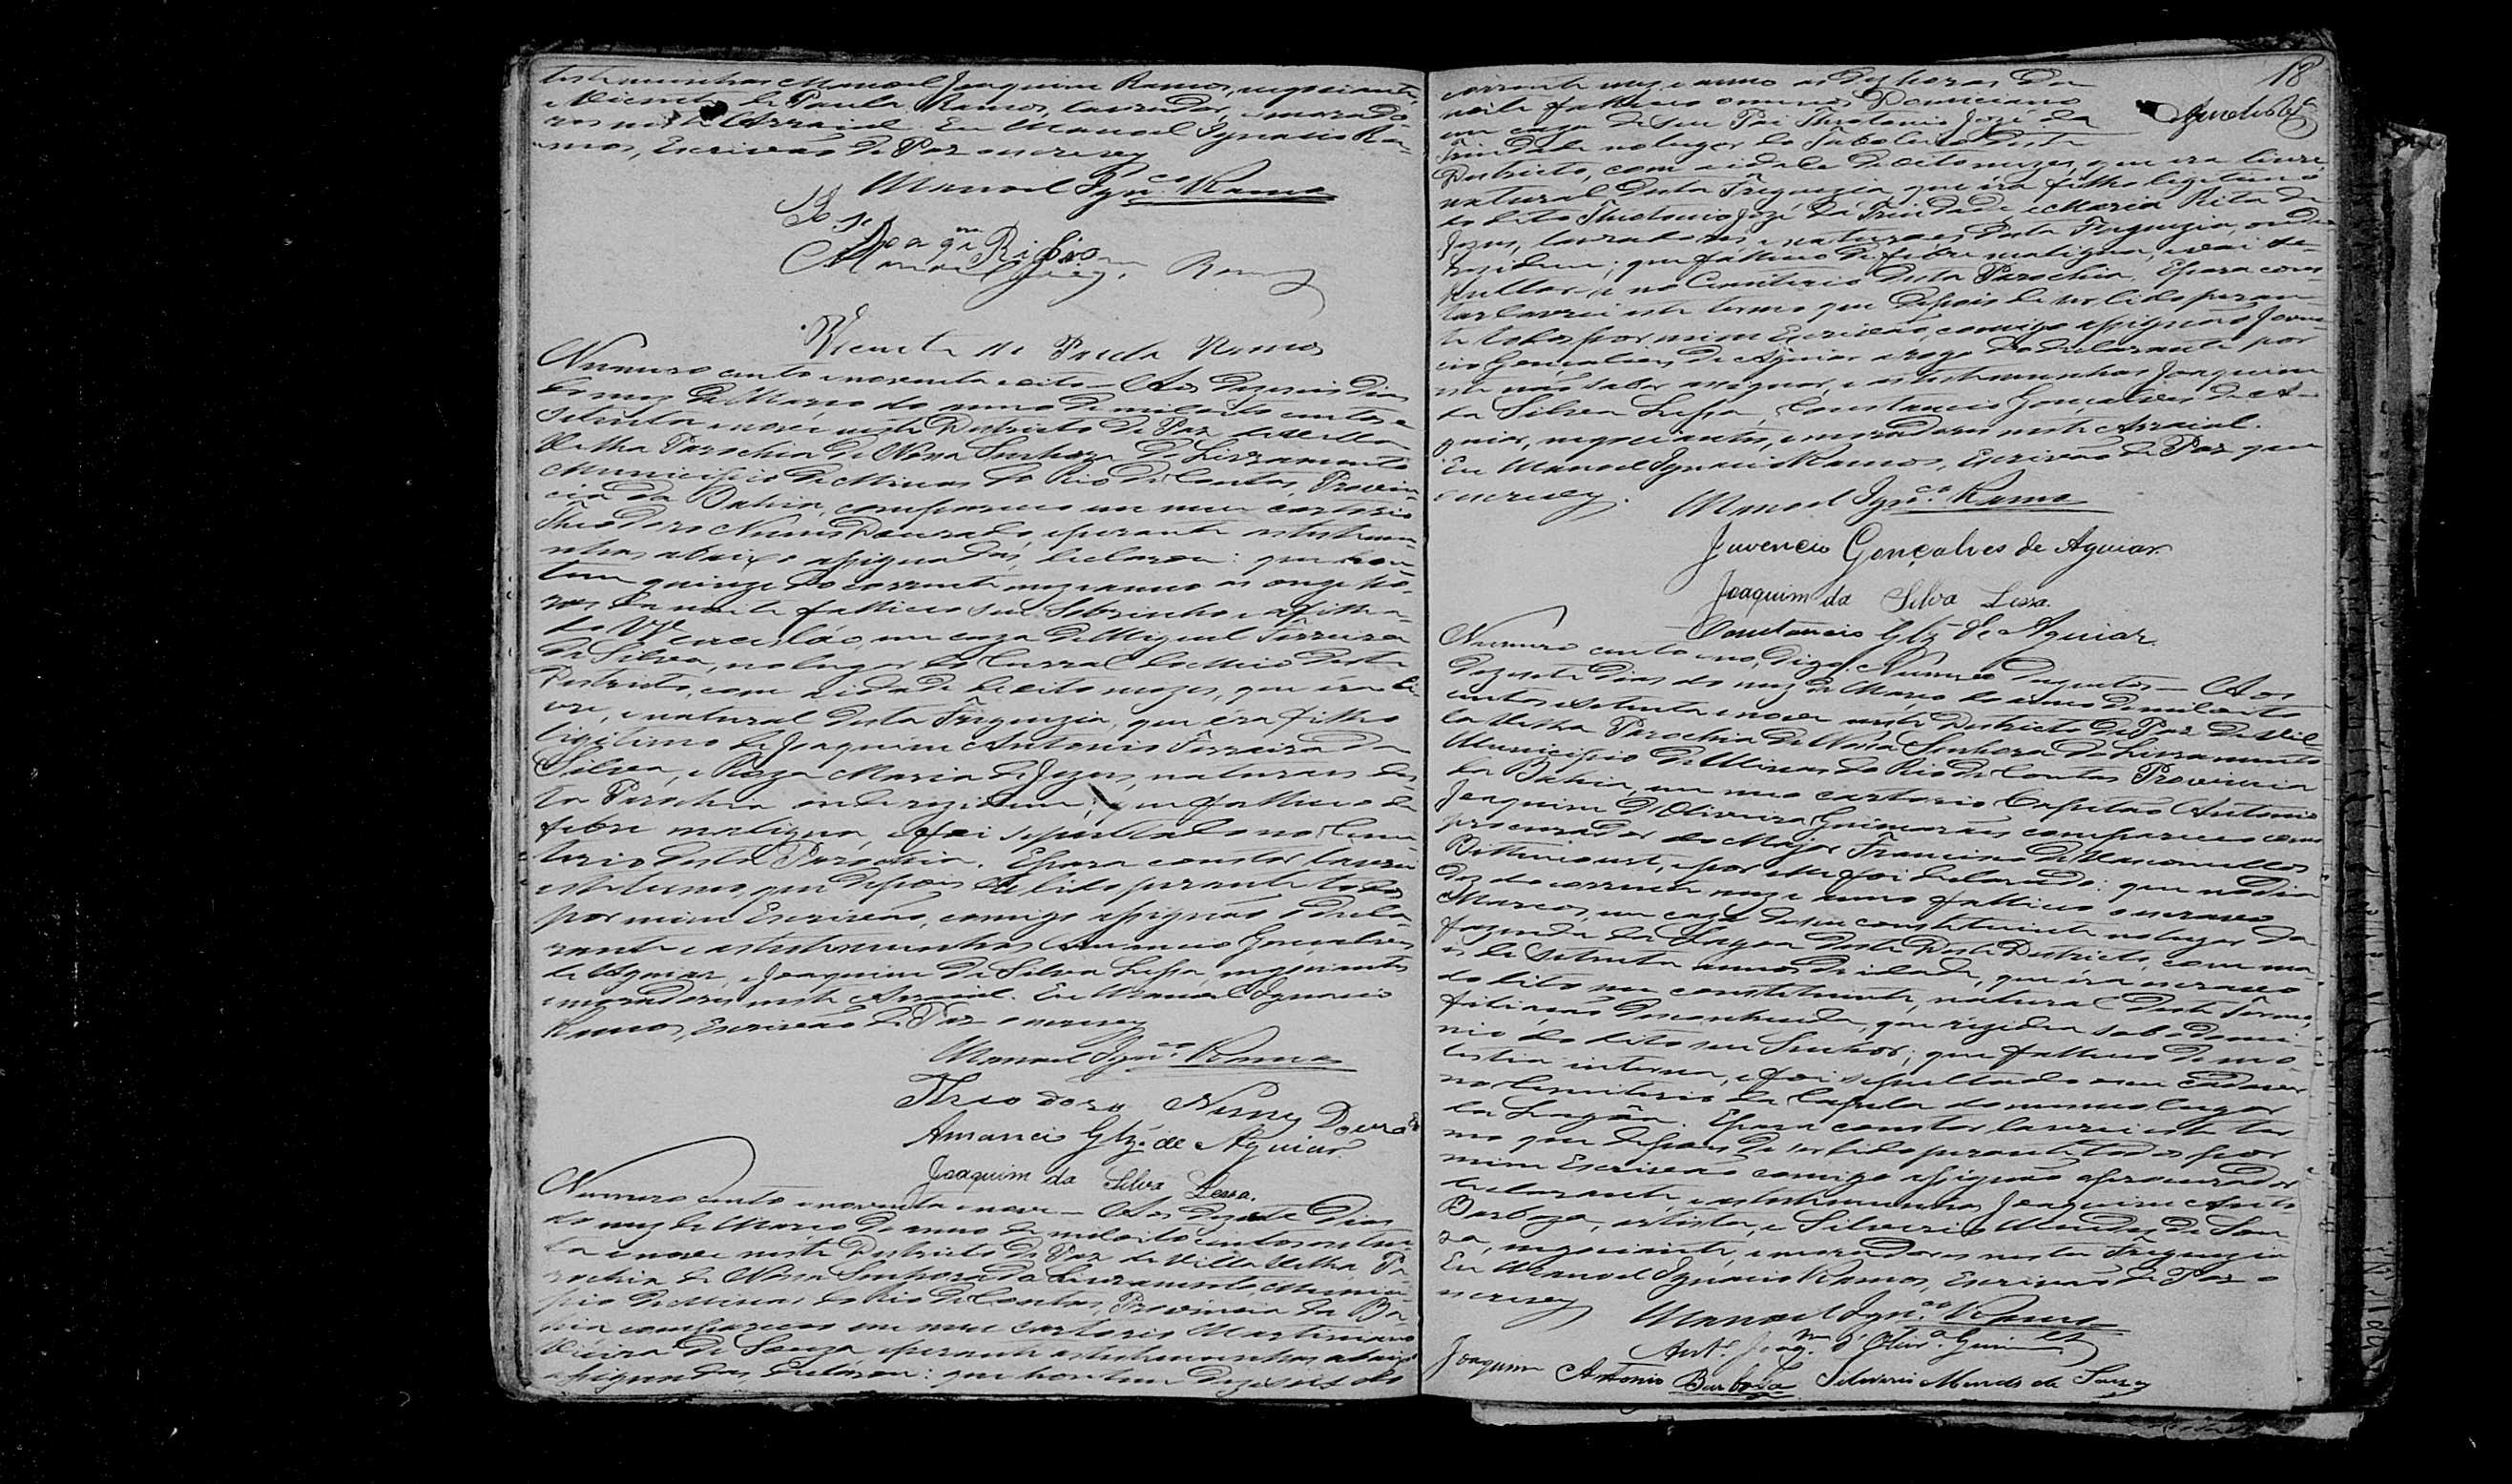 testemunhas Manoel Joaquim Ramos, negociante,
e Vicente de Paula Ramos, lavrador, e morado-
res neste Arraial. Eu Manoel Ignacio Ra-
mos, Escrivão de Paz escrevy
Manoel Ign.co Ramos
José
Joaqm
Manoel Joaq. Ramos
Vicente de Paula Ramos
Numero cento e noventa e oito — Aos dezeseis dias
do mez de Março do anno de mil oito centos e
setenta e nove neste Districto de Paz da Villa
Velha Parochia de Nossa Senhora do Livramento
Municipio de Minas do Rio de Contas, Provin-
cia da Bahia, compareceu em meu cartorio
Theodoro Nunes Dourado, e perante as testemu-
nhas abaixo assignadas, declarou: que hon-
tem quinze do corrente mez e anno as onze ho-
ras da noite falleceu seu Sobrinho e afilha-
do Wencesláo, em caza de Miguel Ferreira
da Silva, no lugar do Curral do Meio deste
Districto, com a idade de oito mezes, que éra li-
vre, e natural desta Freguezia, que éra filho
legitimo de Joaquim Antonio Ferreira da
Silva, e Roza Maria de Jezus, naturaes des-
ta Parochia onde rezidem; que falleceu de
febre maligna, e foi sepultado no Cemi-
terio desta Parochia. E para constar lavrei
este termo que depois de lido perante todos
por mim Escrivão, comigo assignão o decla-
rante e as testemunhas Amancio Gonçalves
de Aguiar, e Joaquim da Silva Lessa, negociantes
e moradores neste Arraial. Eu Manoel Ignacio
Ramos, Escrivão de Paz o escrevy
Manoel Ign.co Ramos
Theodoro Nunes Dourado
Amancio Glz. de Aguiar
Joaquim da Silva Lessa.
Numero cento e noventa e nove — Aos dezesete dias
do mez de Março do anno de mil oito centos e seten-
ta e nove neste Districto de Paz da Villa Velha, Pa-
rochia de Nossa Senhora do Livramento, Munici-
pio de Minas do Rio de Contas, Provincia da Ba-
hia compareceu em meu cartorio Martiniano
Vieira de Souza e perante as testemunhas abaixo
assignadas, declarou: que hontem dezeseis do
18
corrente mez e anno as dez horas da
noite falleceu o menor
em caza de seu Pai Theotonio José da
Trindade no lugar do Taboleiro deste
Districto, com a idade de oito mezes, que era livre
natural desta Freguezia, que éra filho legitimo
do dito Theotonio José da Trindade e Maria Rita de
Jezus, lavradores e naturaes desta Freguezia, onde
rezidem; que falleceu de febre maligna, e vai se-
pultar-se no Cemiterio desta Parochia. E para cons-
tar lavrei este termo que depois de ser lido peran-
te todos por mim Escrivão, comigo assignão Juven-
cio Gonçalves de Aguiar a rogo do declarante por
este não saber assignar, e as testemunhas Joaquim
da Silva Lessa, e Constancio Gonçalves de A-
guiar, negociantes, e moradores neste Arraial.
Eu Manoel Ignacio Ramos, Escrivão de Paz que
escrevy.
Manoel Ign.co Ramos
Juvencio Gonçalves de Aguiar.
Joaquim da Silva Lessa.
Constancio Glz de Aguiar.
Numero cento e no, digo, Numero Duzentos — Aos
dezesete dias do mez de Março do anno de mil oito
centos e setenta e nove neste Districto de Paz da Vil-
la Velha Parochia de Nossa Senhora do Livramento
Municipio de Minas do Rio de Contas Provincia
da Bahia, em meu cartorio Capitão Antonio
Joaquim d'Oliveira Guimarães compareceu como
procurador do Major Francisco de Vasconcellos
Bittencourt, e por elle foi declarado: que no dia
dez do corrente mez e anno falleceu o escravo
Marcos, em caza de seu constituinte no lugar da
fazenda da Lagoa deste Districto, com ma-
is de setenta annos de idade, que éra escravo
do dito seu constituinte, natural deste Termo,
filiação desconhecida, que rezidia sob o domi-
nio do dito seu Senhor; que falleceu de mo-
lestia interna, e foi sepultado o seu cadaver
no Cemiterio da Capela do mesmo lugar
da Lagôa. E para constar lavrei este ter-
mo que depois de ser lido perante todos por
mim Escrivão comigo assignão o procurador
declarante, e as testemunhas Joaquim Anto
Barboza, artista, e Silverio Mendes de Sou-
za, negociante, e moradores nesta Freguezia
Eu Manoel Ignacio Ramos, Escrivão de Paz o
escrevy
Manoel Ign.co Ramos
Ant.o Joaq.m d'Oliv.a Guim.es
Joaquim Antonio Barboza Silverio Mendes de Souza